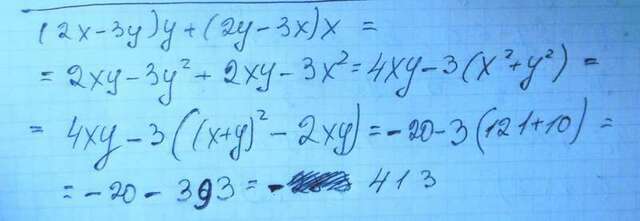 (2x-3y)y+(2y-3x)x=
=2xy-3y²+2xy-3x²=4xy-3(x²+y²)=
=4xy-3((x+y)²-2xy)=-20-3(121+10)=
=-20-393=- 413